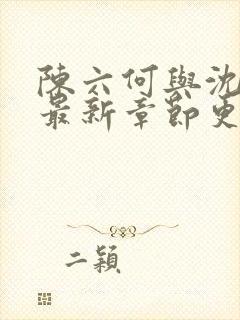 陳六何與沈
最新章節更
二穎